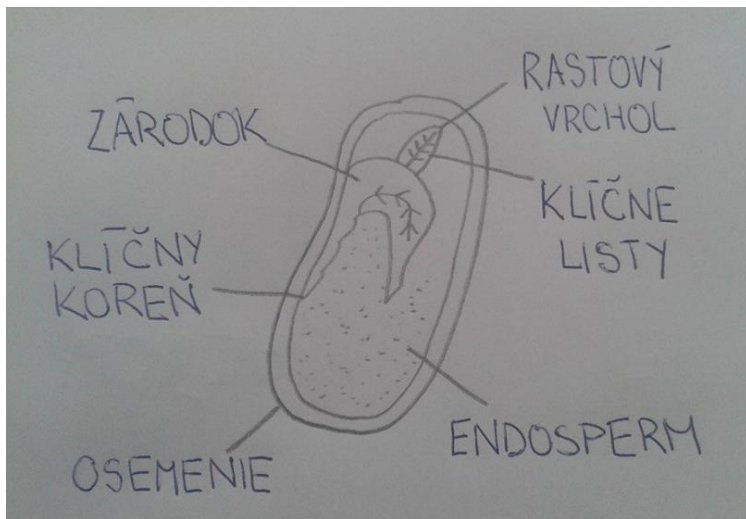 ZÁRODOK
RASTOVÝ
VRCHOL
KLÍČNE
LISTY
KLÍČNY
KOREŇ
ENDOSPERM
OSEMENIE